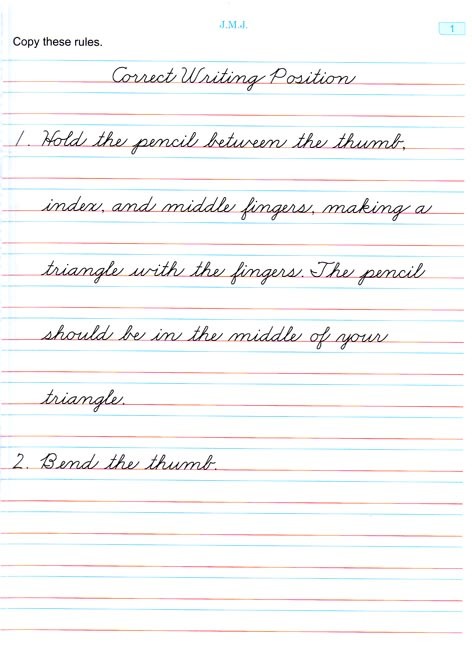 J.M.J.
1
Copy these rules.
Correct Writing Position
1. Hold the pencil between the thumb,
index, and middle fingers, making a
triangle with the fingers. The pencil
should be in the middle of your
triangle.
2. Bend the thumb.